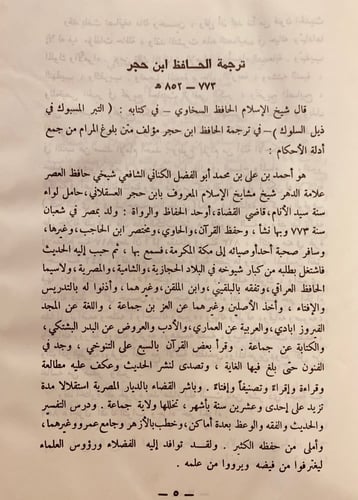 ترجمة الحافظ ابن حجر
٧٧٣ – ٨٥٢ هـ
قال شيخ الإسلام الحافظ السخاوي – في كتابه : ( التبر المسبوك في
ذيل السلوك ) – في ترجمة الحافظ ابن حجر مؤلف متن بلوغ المرام من جمع
أدلة الأحكام :
هو أحمد بن على بن محمد أبو الفضل الكناني الشافعي شيخي حافظ العصر
علامة الدهر شيخ مشايخ الإسلام المعروف بابن حجر العسقلاني، حامل لواء
سنة سيد الأنام، قاضي القضاة، أوحد الحفاظ والرواة : ولد بمصر في شعبان
سنة ٧٧٣ وبها نشأ ، وحفظ القرآن، والحاوي، ومختصر ابن الحاجب، وغيرها،
وسافر صحبة أحد أوصيائه إلى مكة المكرمة، فسمع بها ، ثم حبب إليه الحديث
فاشتغل بطلبه من كبار شيوخه في البلاد الحجازية والشامية، والمصرية، ولاسيما
الحافظ العراقي، وتفقه بالبلقيني، وابن الملقن، وغيرهما، وأذنوا له بالتدريس
والإفتاء ، وأخذ الأصلين وغيرهما عن العز بن جماعة ، واللغة عن المجد
الفيروز ابادي، والعربية عن العماري، والأدب والعروض عن البدر البشتكي،
والكتابة عن جماعة . وقرأ بعض القرآن بالسبع على التنوخي ، وجد في
الفنون حتى بلغ فيها الغاية ، وتصدى لنشر الحديث وعكف عليه مطالعة
وقراءة وإقراءً وتصنيفاً وإفتاءً . وباشر القضاء بالديار المصرية استقلالا مدة
تزيد على إحدى وعشرين سنة بأشهر، تخللها ولاية جماعة . ودرس التفسير
والحديث والفقه والوعظ بعدة أماكن، وخطب بالأزهر وجامع عمرو وغيرهما،
وأملى من حفظه الكثير . ولقد توافد إليه الفضلاء ورؤوس العلماء
ليغترفوا من فيضه ويرووا من علمه .
– ٥ –